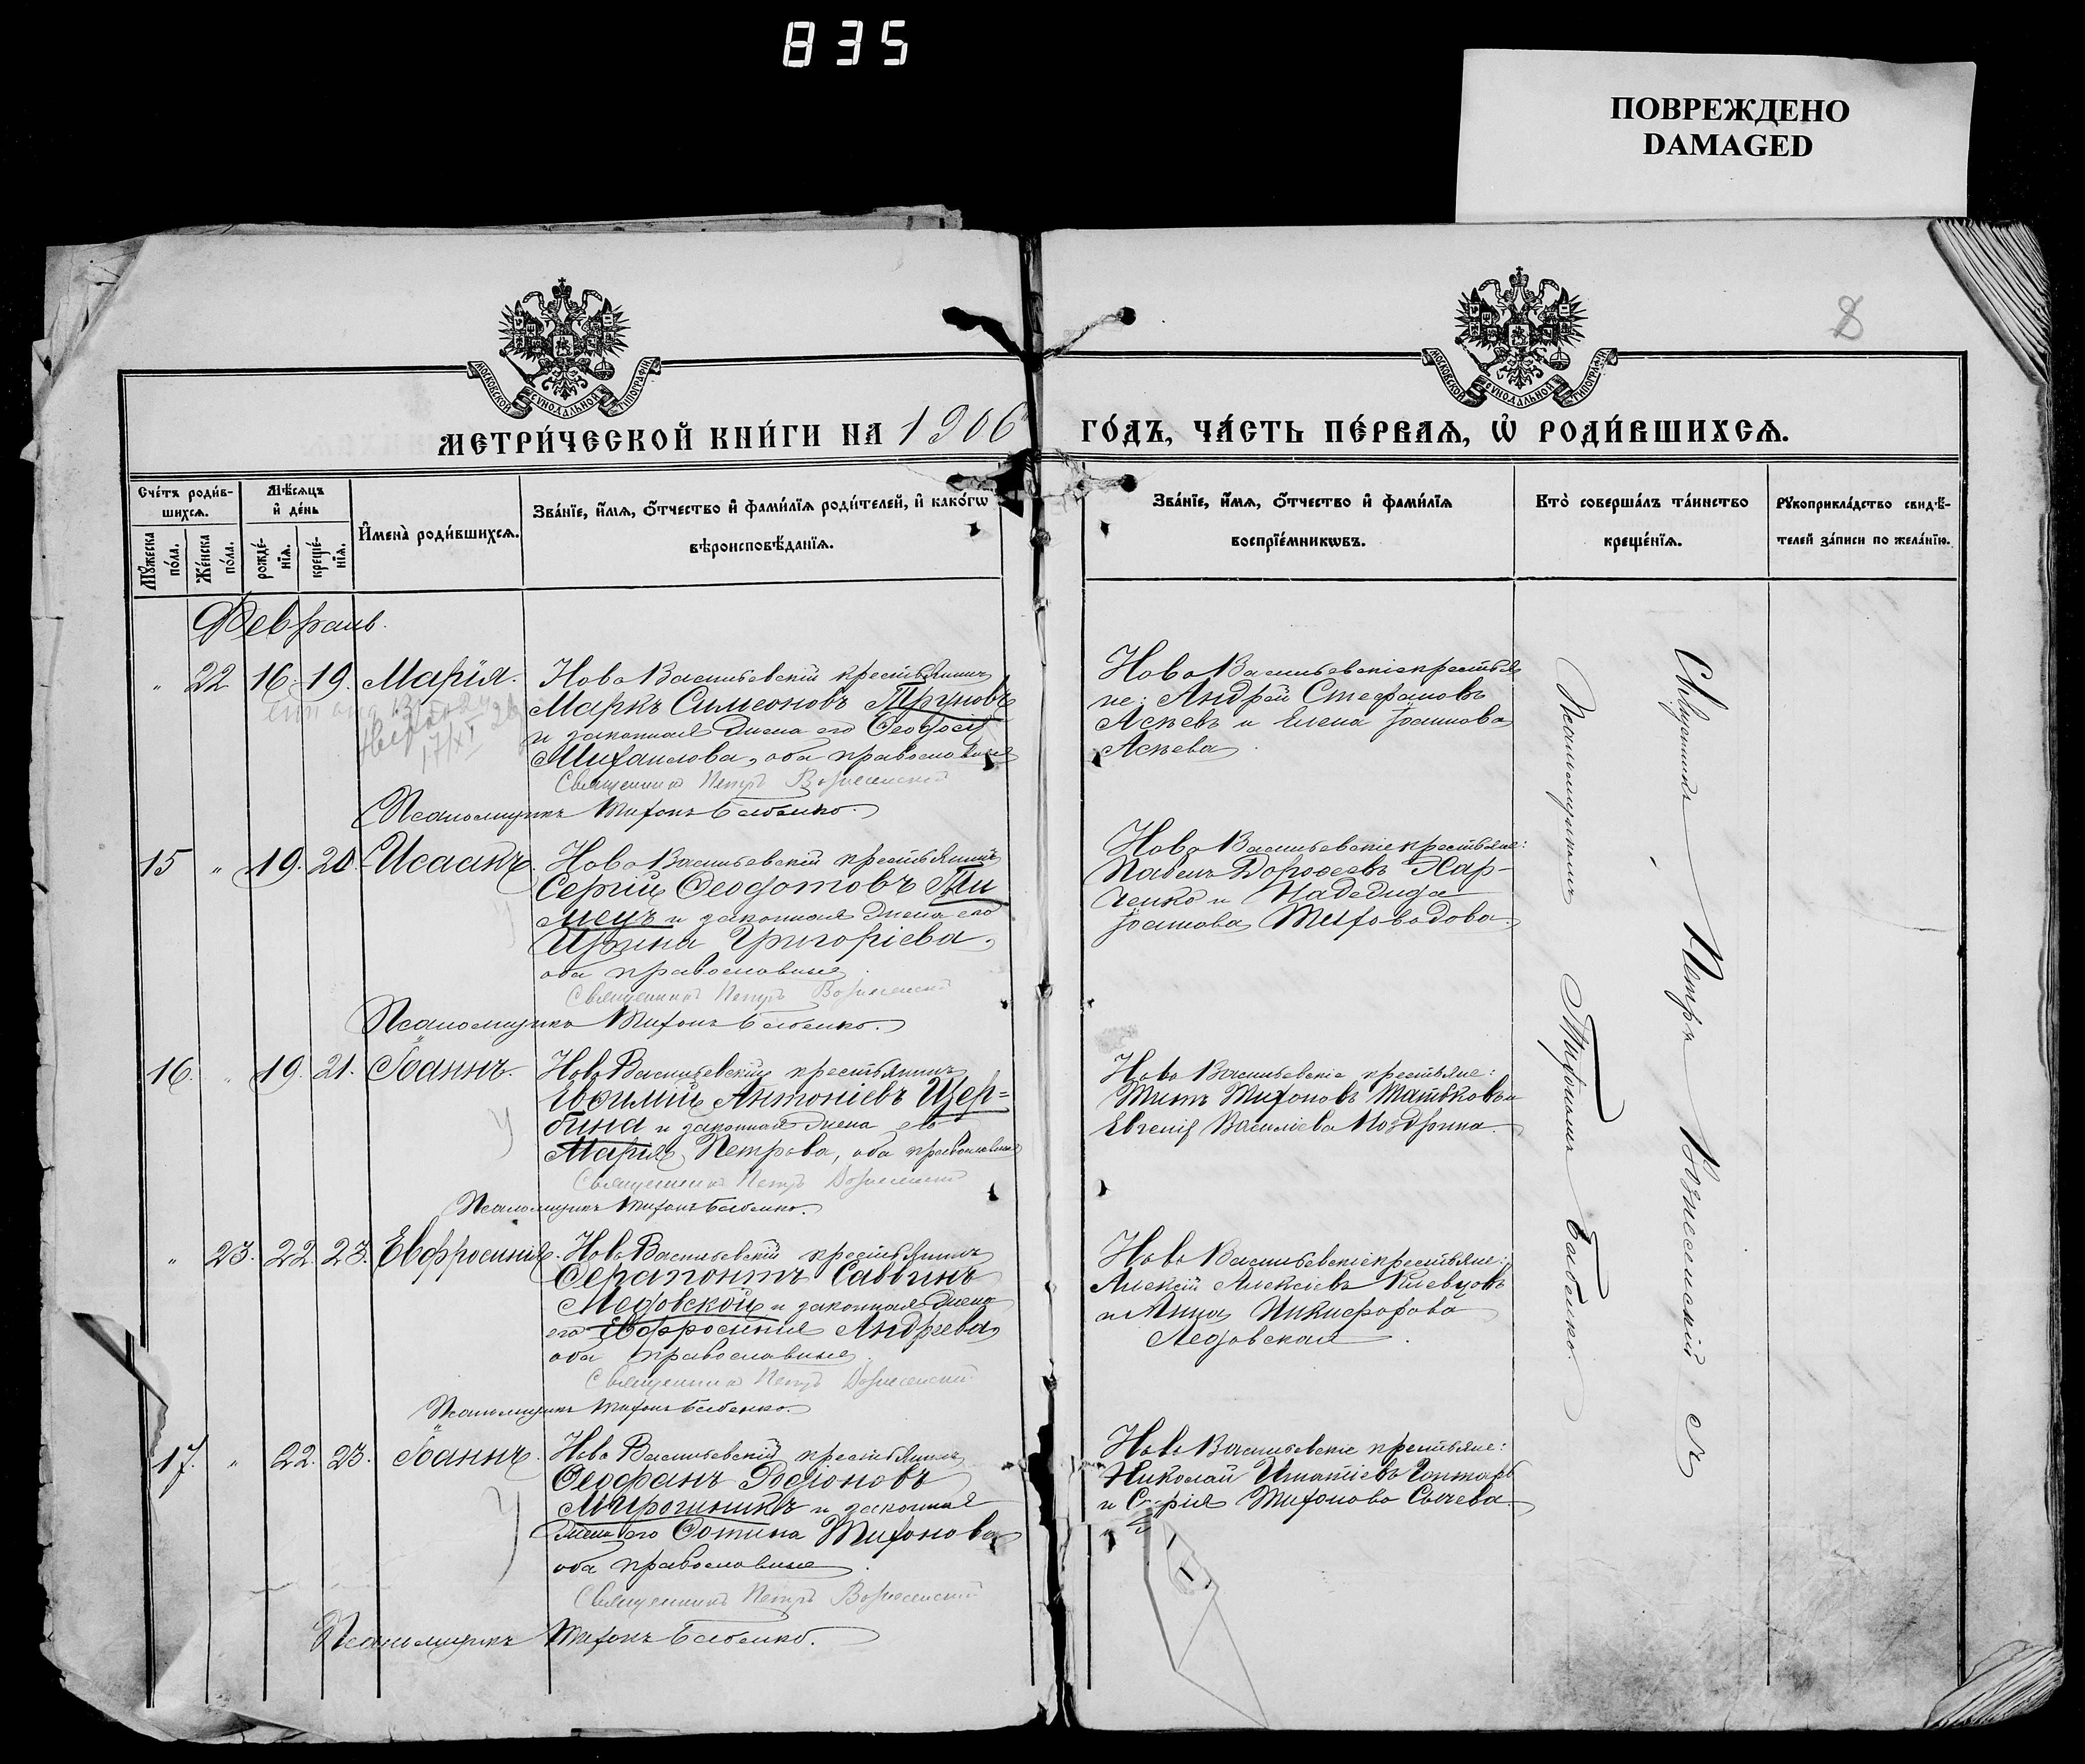 835
ПОВРЕЖДЕНО
DAMAGED
8
МОСКОВСКОЙ СѴНОДАЛЬНОЙ ТИПОГРАФІИ
МОСКОВСКОЙ СѴНОДАЛЬНОЙ ТИПОГРАФІИ
МЕТРИ́ЧЕСКОЙ КНИ́ГИ НА 1906 ГО́ДЪ, ЧА́СТЬ ПЕ́РВАѦ, Ѡ҆ РОДИ́ВШИХСѦ.
Сче́тъ роди́вшихсѧ.
Мꙋ́жеска по́ла.
Же́нска по́ла.
Мѣ́сѧцъ и҆ де́нь
рожде́нїѧ.
креще́нїѧ.
И҆мена̀ роди́вшихсѧ.
Зва́нїе, и҆́мѧ, ѻ҆́тчество и҆ фами́лїѧ роди́телей, и҆ како́гѡ
вѣроисповѣ́данїѧ.
Зва́нїе, и҆́мѧ, ѻ҆́тчество и҆ фами́лїѧ
воспрїе́мникѡвъ.
Кто̀ соверша́лъ та́инство
креще́нїѧ.
Рꙋкоприкла́дство свидѣ́-
телей за́писи по жела́нїю.
Февраль.
" 22 16. 19. Марія.
Ново Васильевскій крестьянинъ
Маркъ Симеоновъ Труновъ
и законная жена его Ѳеодосія
Михаилова, оба православные
Священникъ Петръ Вознесенскій
Псаломщикъ Тихонъ Бабенко.
Ново Васильевскіе крестья
не: Андрей Стефановъ
Асѣевъ и Елена Іоаннова
Асѣева
15 " 19. 20. Исаакъ.
Ново Васильевскій крестьянинъ
Сергій Ѳеодотовъ
и законная жена его
Ирина Григоріева,
оба православные.
Священникъ Петръ Вознесенскій
Псаломщикъ Тихонъ Бабенко.
Ново Васильевскіе крестьяне:
Павелъ Дороѳеевъ Хар-
ченко и Надежда
Іоаннова
16. " 19. 21. Іоаннъ.
Ново Васильевскій крестьянинъ
Евѳимій Антоніевъ Щер=
бина и законная жена его
Марія Петрова, оба православные
Священникъ Петръ Вознесенскій
Псаломщикъ Тихонъ Бабенко.
Ново Васильевскіе крестьяне:
Титъ Тихоновъ
Евгенія Василіева
" 23. 22. 23. Евфросинія.
Ново Васильевскій крестьянинъ
Серапонтъ Саввинъ
и законная жена
его Евфросинія Андреева,
оба православные.
Священникъ Петръ Вознесенскій
Псаломщикъ Тихонъ Бабенко.
Ново Васильевскіе крестьяне:
Алексій Алексіевъ
и Анна Никифорова
17. " 22. 23. Іоаннъ.
Ново Васильевскій крестьянинъ
Ѳеофанъ Родіоновъ
Мирошникъ и законная
жена его Фотина Тихонова
оба православные
Священникъ Петръ Вознесенскій
Псаломщикъ Тихонъ Бабенко.
Ново Васильевскіе крестьяне:
Николай Игнатіевъ Гонтарь
и Тихонова Сычева.
Священникъ Петръ Вознесенскій съ
Псаломщикомъ Тихономъ Бабенко.